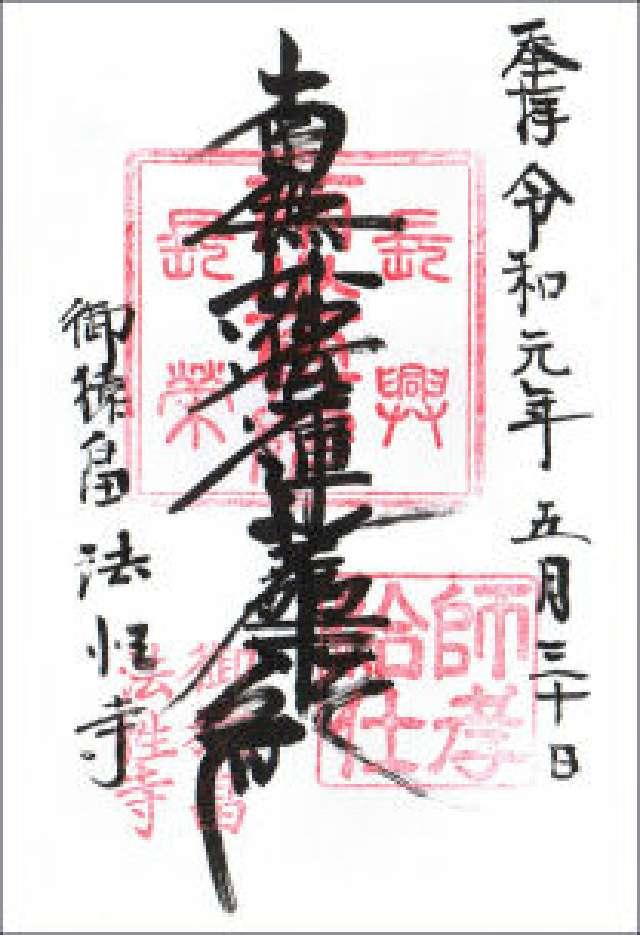 奉拝 令和元年 五月三十日
南無妙法蓮華経
御猿畠 法性寺
長興
長榮
師孝
給仕
法性寺